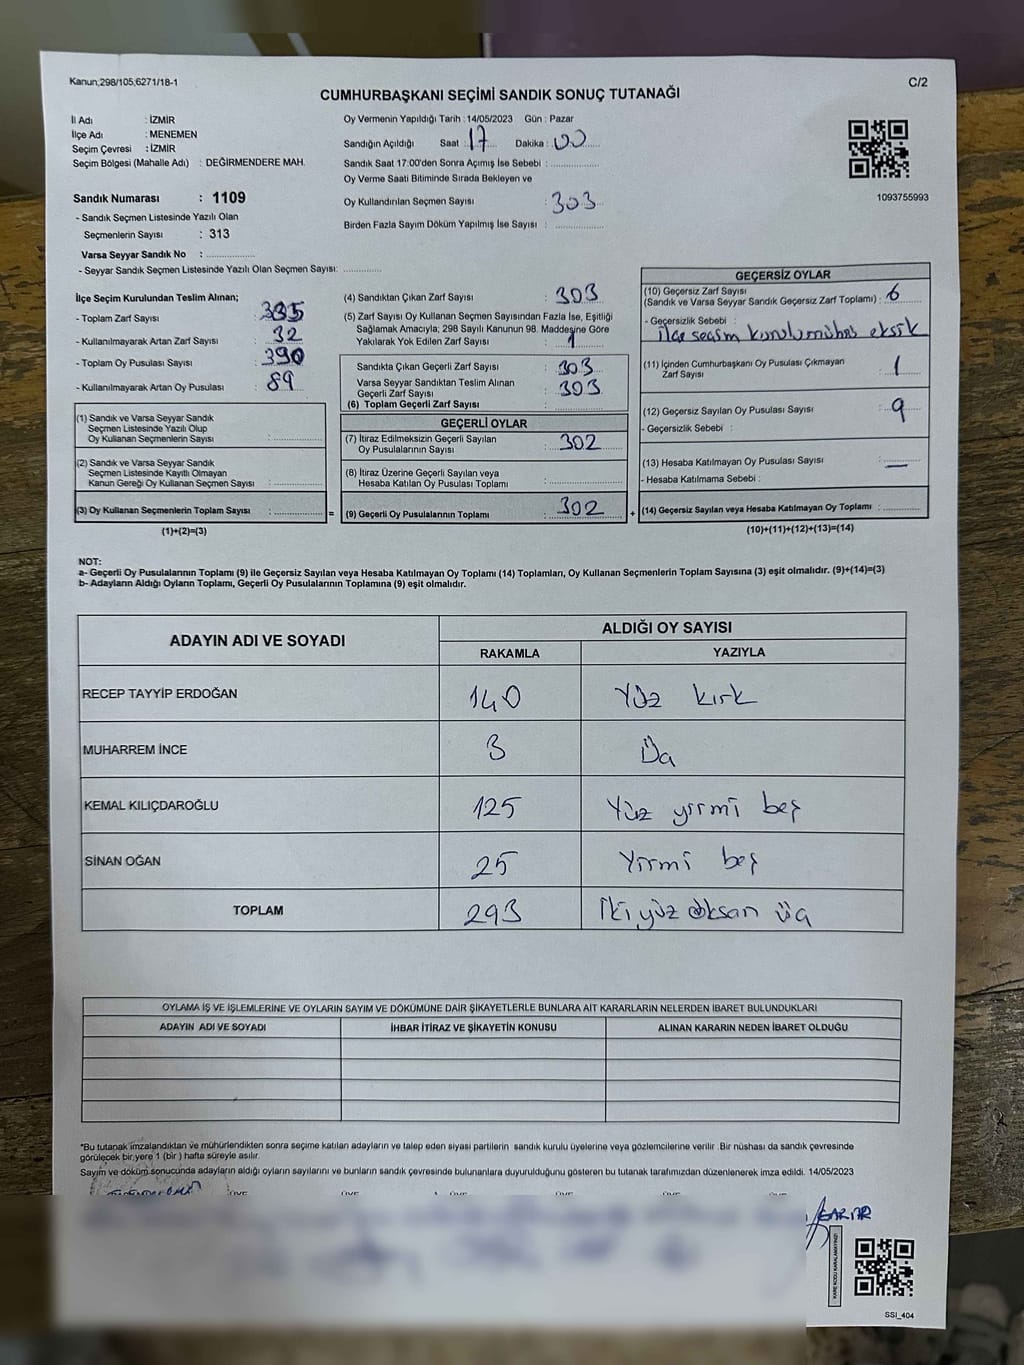 Kanun,298/105,6271/18-1
C/2
CUMHURBAŞKANI SEÇİMİ SANDIK SONUÇ TUTANAĞI
İl Adı : İZMİR
İlçe Adı : MENEMEN
Seçim Çevresi : İZMİR
Seçim Bölgesi (Mahalle Adı) : DEĞİRMENDERE MAH.
Sandık Numarası : 1109
- Sandık Seçmen Listesinde Yazılı Olan
Seçmenlerin Sayısı : 313
Varsa Seyyar Sandık No : ...............
- Seyyar Sandık Seçmen Listesinde Yazılı Olan Seçmen Sayısı: ............
Oy Vermenin Yapıldığı Tarih : 14/05/2023 Gün : Pazar
Sandığın Açıldığı Saat : 17 Dakika : 00
Sandık Saat 17:00'den Sonra Açımış İse Sebebi : ...............
Oy Verme Saati Bitiminde Sırada Bekleyen ve
Oy Kullandırılan Seçmen Sayısı : 303
Birden Fazla Sayım Döküm Yapılmış İse Sayısı : ...............
1093755993
İlçe Seçim Kurulundan Teslim Alınan;
- Toplam Zarf Sayısı : 335
- Kullanılmayarak Artan Zarf Sayısı : 32
- Toplam Oy Pusulası Sayısı : 390
- Kullanılmayarak Artan Oy Pusulası : 89
(1) Sandık ve Varsa Seyyar Sandık
Seçmen Listesinde Yazılı Olup
Oy Kullanan Seçmenlerin Sayısı : ...............
(2) Sandık ve Varsa Seyyar Sandık
Seçmen Listesinde Kayıtlı Olmayan
Kanun Gereği Oy Kullanan Seçmen Sayısı : ...............
(3) Oy Kullanan Seçmenlerin Toplam Sayısı : ............... =
(1)+(2)=(3)
(4) Sandıktan Çıkan Zarf Sayısı : 303
(5) Zarf Sayısı Oy Kullanan Seçmen Sayısından Fazla İse, Eşitliği
Sağlamak Amacıyla; 298 Sayılı Kanunun 98. Maddesine Göre
Yakılarak Yok Edilen Zarf Sayısı : 1
Sandıkta Çıkan Geçerli Zarf Sayısı : 303
Varsa Seyyar Sandıktan Teslim Alınan
Geçerli Zarf Sayısı : 303
(6) Toplam Geçerli Zarf Sayısı : ...............
GEÇERLİ OYLAR
(7) İtiraz Edilmeksizin Geçerli Sayılan
Oy Pusulalarının Sayısı : 302
(8) İtiraz Üzerine Geçerli Sayılan veya
Hesaba Katılan Oy Pusulası Toplamı : ...............
(9) Geçerli Oy Pusulalarının Toplamı : 302 +
GEÇERSİZ OYLAR
(10) Geçersiz Zarf Sayısı
(Sandık ve Varsa Seyyar Sandık Geçersiz Zarf Toplamı) : 6
- Geçersizlik Sebebi :
ilçe seçim kurulu mührü eksik
(11) İçinden Cumhurbaşkanı Oy Pusulası Çıkmayan
Zarf Sayısı : 1
(12) Geçersiz Sayılan Oy Pusulası Sayısı : 9
- Geçersizlik Sebebi :
(13) Hesaba Katılmayan Oy Pusulası Sayısı : —
- Hesaba Katılmama Sebebi :
(14) Geçersiz Sayılan veya Hesaba Katılmayan Oy Toplamı : ............
(10)+(11)+(12)+(13)=(14)
NOT:
a- Geçerli Oy Pusulalarının Toplamı (9) ile Geçersiz Sayılan veya Hesaba Katılmayan Oy Toplamı (14) Toplamları, Oy Kullanan Seçmenlerin Toplam Sayısına (3) eşit olmalıdır. (9)+(14)=(3)
b- Adayların Aldığı Oyların Toplamı, Geçerli Oy Pusulalarının Toplamına (9) eşit olmalıdır.
ADAYIN ADI VE SOYADI
ALDIĞI OY SAYISI
RAKAMLA YAZIYLA
RECEP TAYYİP ERDOĞAN 140 Yüz kırk
MUHARREM İNCE 3 Üç
KEMAL KILIÇDAROĞLU 125 Yüz yirmi beş
SİNAN OĞAN 25 Yirmi beş
TOPLAM 293 İki yüz doksan üç
OYLAMA İŞ VE İŞLEMLERİNE VE OYLARIN SAYIM VE DÖKÜMÜNE DAİR ŞİKAYETLERLE BUNLARA AİT KARARLARIN NELERDEN İBARET BULUNDUKLARI
ADAYIN ADI VE SOYADI İHBAR İTİRAZ VE ŞİKAYETİN KONUSU ALINAN KARARIN NEDEN İBARET OLDUĞU
*Bu tutanak imzalandıktan ve mühürlendikten sonra seçime katılan adayların ve talep eden siyasi partilerin sandık kurulu üyelerine veya gözlemcilerine verilir .Bir nüshası da sandık çevresinde
görülecek bir yere 1 (bir ) hafta süreyle asılır.
Sayım ve döküm sonucunda adayların aldığı oyların sayılarını ve bunların sandık çevresinde bulunanlara duyurulduğunu gösteren bu tutanak tarafımızdan düzenlenerek imza edildi. 14/05/2023
ÜYE ÜYE ÜYE ÜYE ÜYE ÜYE
KARE KODU KARALAMAYINIZ!
SSI_404